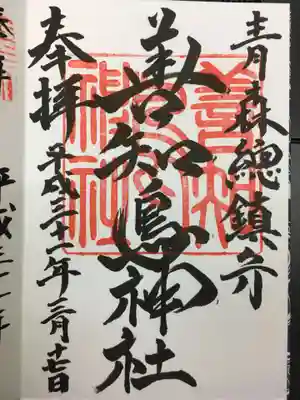 青森總鎮守
善知鳥神社
奉拝
平成三十一年三月十七日
善知鳥神社
平成三十一年